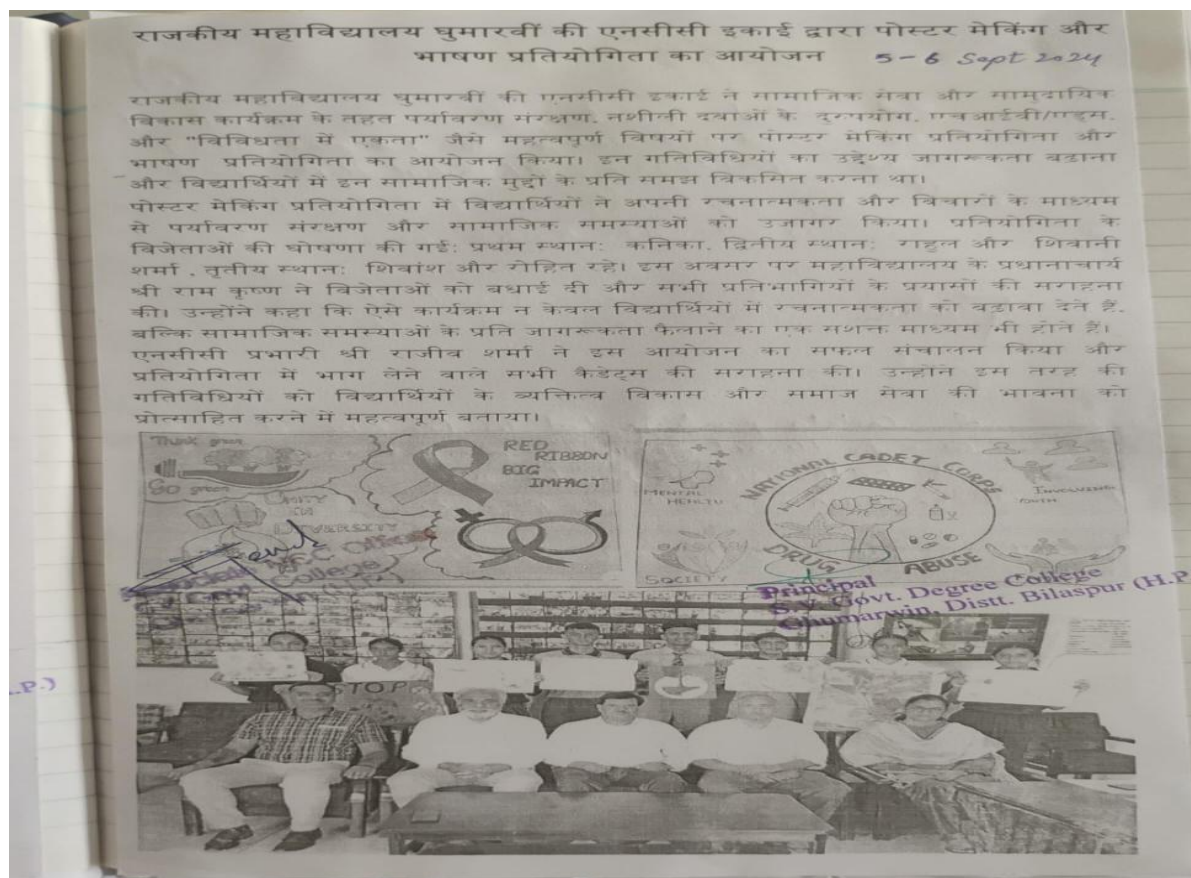 राजकीय महाविद्यालय घुमारवीं की एनसीसी इकाई द्वारा पोस्टर मेकिंग और
भाषण प्रतियोगिता का आयोजन 5-6 Sept 2024
राजकीय महाविद्यालय घुमारवीं की एनसीसी इकाई ने सामाजिक सेवा और सामुदायिक
विकास कार्यक्रम के तहत पर्यावरण संरक्षण, नशीली दवाओं के दुरुपयोग, एचआईवी/एड्स,
और "विविधता में एकता" जैसे महत्वपूर्ण विषयों पर पोस्टर मेकिंग प्रतियोगिता और
भाषण प्रतियोगिता का आयोजन किया। इन गतिविधियों का उद्देश्य जागरूकता बढ़ाना
और विद्यार्थियों में इन सामाजिक मुद्दों के प्रति समझ विकसित करना था।
पोस्टर मेकिंग प्रतियोगिता में विद्यार्थियों ने अपनी रचनात्मकता और विचारों के माध्यम
से पर्यावरण संरक्षण और सामाजिक समस्याओं को उजागर किया। प्रतियोगिता के
विजेताओं की घोषणा की गई: प्रथम स्थान: कनिका, द्वितीय स्थान: राहुल और शिवानी
शर्मा , तृतीय स्थान: शिवांश और रोहित रहे। इस अवसर पर महाविद्यालय के प्रधानाचार्य
श्री राम कृष्ण ने विजेताओं को बधाई दी और सभी प्रतिभागियों के प्रयासों की सराहना
की। उन्होंने कहा कि ऐसे कार्यक्रम न केवल विद्यार्थियों में रचनात्मकता को बढ़ावा देते हैं,
बल्कि सामाजिक समस्याओं के प्रति जागरूकता फैलाने का एक सशक्त माध्यम भी होते हैं।
एनसीसी प्रभारी श्री राजीव शर्मा ने इस आयोजन का सफल संचालन किया और
प्रतियोगिता में भाग लेने वाले सभी कैडेट्स की सराहना की। उन्होंने इस तरह की
गतिविधियों को विद्यार्थियों के व्यक्तित्व विकास और समाज सेवा की भावना को
प्रोत्साहित करने में महत्वपूर्ण बताया।
Think green
GO green
UNITY
IN
RED
RIBBON
BIG
IMPACT
NATIONAL CADET CORPS
MENTAL
HEALTH
INVOLVING
YOUTH
DRUG ABUSE
SOCIETY
Associate NCC Officer
College
(H.P.)
Principal
S.V. Govt. Degree College
Ghumarwin, Distt. Bilaspur (H.P
.P.)
STOP